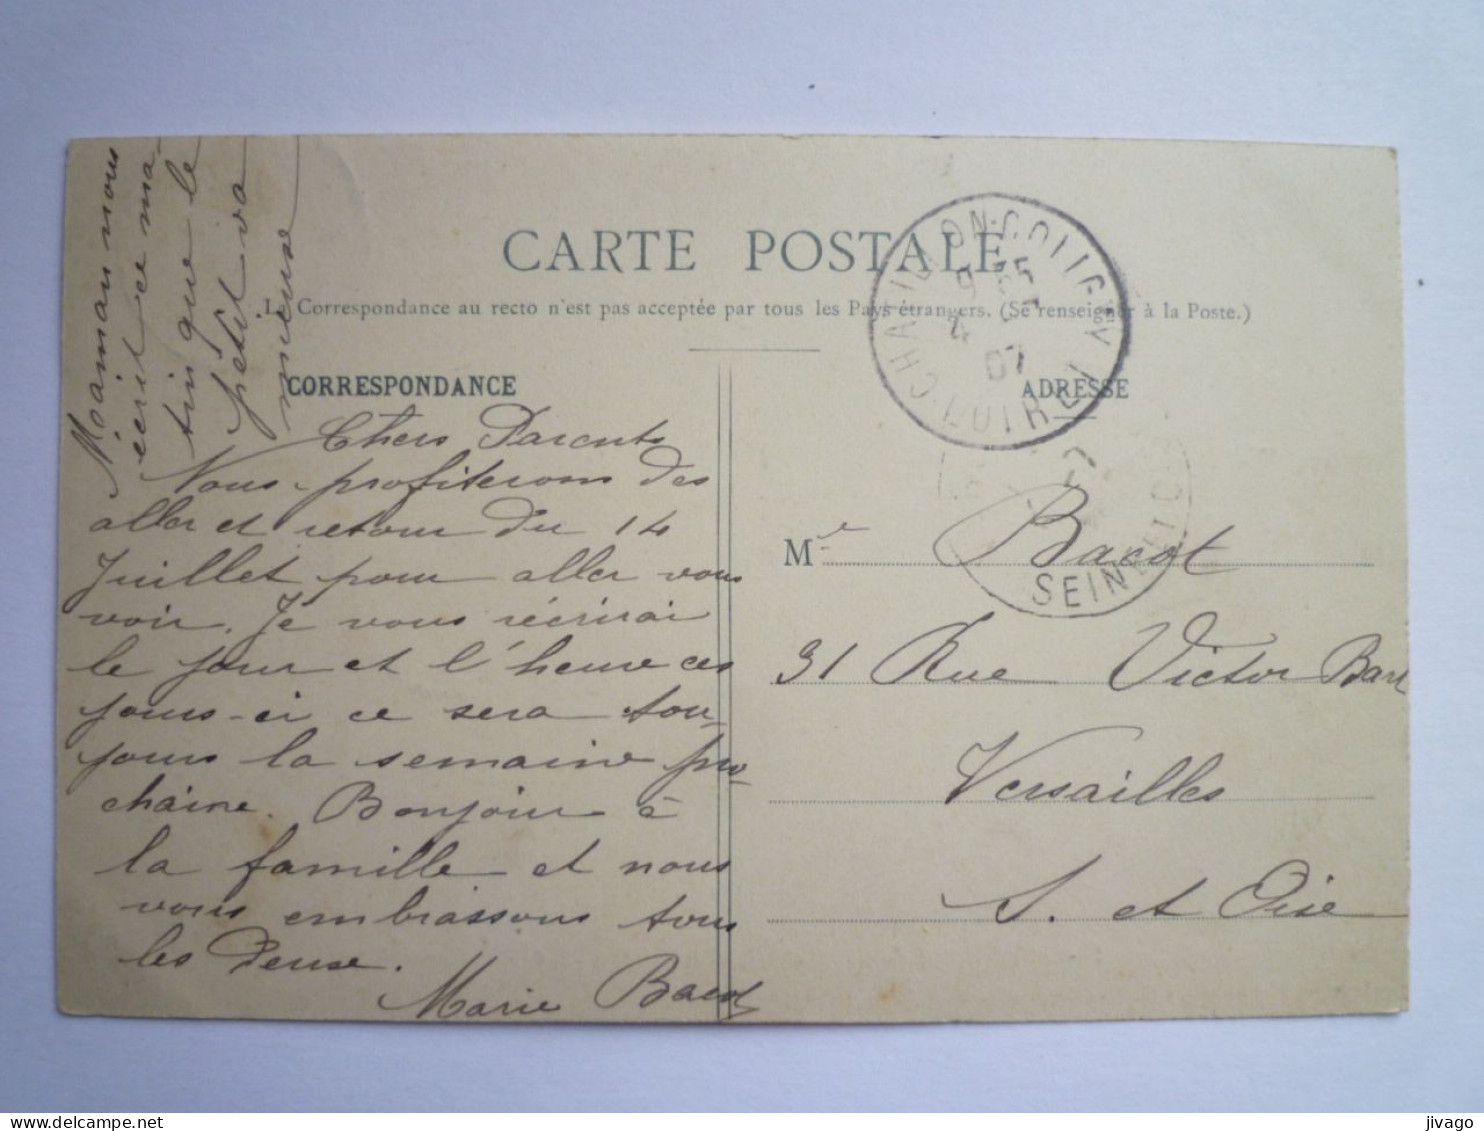 CARTE POSTALE
La Correspondance au recto n'est pas acceptée par tous les Pays étrangers. (Se renseigner à la Poste.)
CORRESPONDANCE
Maman nous
écrit ce ma-
tin que le
petit va
mieuse
Chers Parents
Nous profiterons des
aller et retour du 14
Juillet pour aller vous
voir. Je vous récrirai
le jour et l'heure ces
jours-ci ce sera tou-
jours la semaine pro-
chaine. Bonjour à
la famille et nous
vous embrassons tous
les Deuse.
Marie Bacot
ADRESSE
CHATILLON-COLIGNY
LOIRET
07
Me Bacot
31 Rue Victor Bart
Versailles
S. et Oise
SEINE ET OISE
jivago